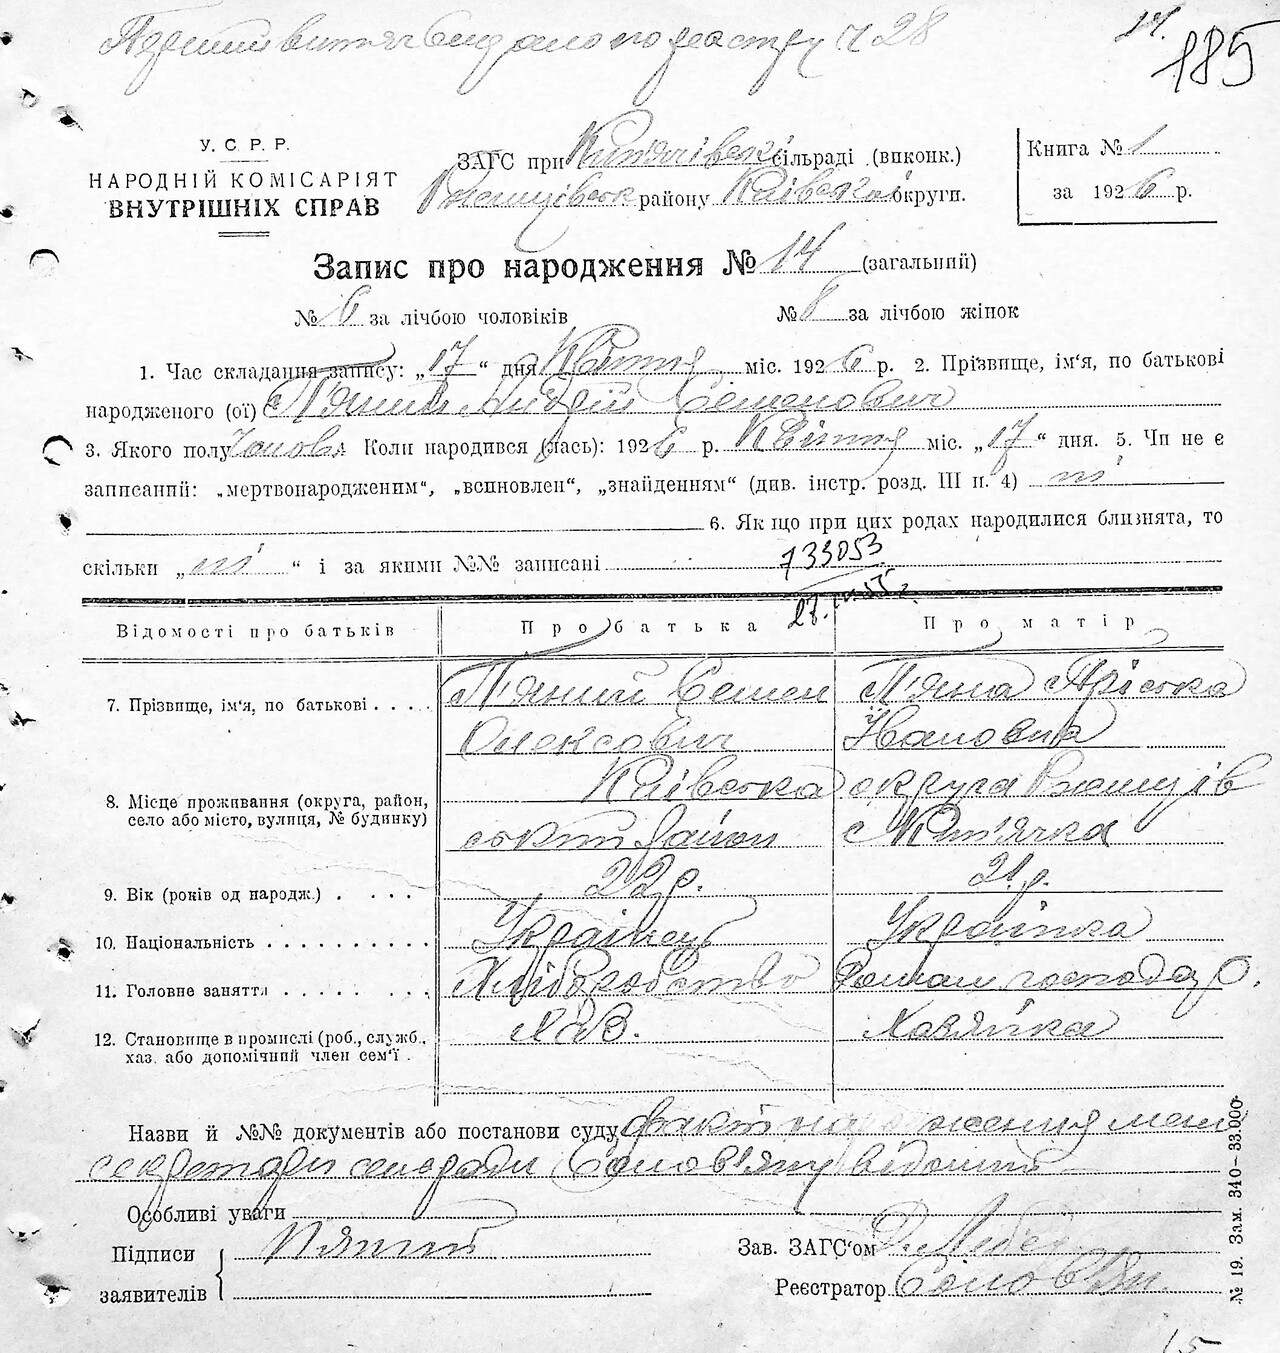 Перший витяг видано по реєстру ч 28
14.
185
У. С. Р. Р.
НАРОДНІЙ КОМІСАРІЯТ
ВНУТРІШНІХ СПРАВ
ЗАГС при сільраді (виконк.)
району Київської округи.
Книга № 1
за 1926 р.
Запис про народження № 14 (загальний)
№ 6 за лічбою чоловіків № 8 за лічбою жінок
1. Час складання запису: „17“ дня Квітня міс. 1926 р. 2. Прізвище, ім'я, по батькові
народженого (ої) П'яний Андрій Семенович
3. Якого полу Чолов. Коли народився (лась): 1926 р. Квітня міс. „17“ дня. 5. Чи не є
записаний: „мертвонародженим“, „всиновлен“, „знайденням“ (див. інстр. розд. III п. 4) ні
6. Якщо при цих родах народилися близнята, то
скільки „ні“ і за якими №№ записані
733053
Відомості про батьків Про батька Про матір
7. Прізвище, ім'я, по батькові П'яний Семен П'яна Пріська
Олексович Івановна
8. Місце проживання (округа, район, село або місто, вулиця, № будинку) Київська округа Ржищів
ський район с Кип'ячка
9. Вік (років од народж.) 22 р. 21 р.
10. Національність Українець Українка
11. Головне заняття Хліборобство Домаш господар.
12. Становище в промислі (роб., служб., Хаз. Хазяйка
хаз. або допомічний член сем'ї
Назви й №№ документів або постанови суду факт народження мені
секретарю сельради Солов'яну відомий
Особливі уваги
Підписи П'яний Зав. ЗАГС'ом
заявителів Реєстратор Солов'ян
№ 19. Зам. 340—33.000
15